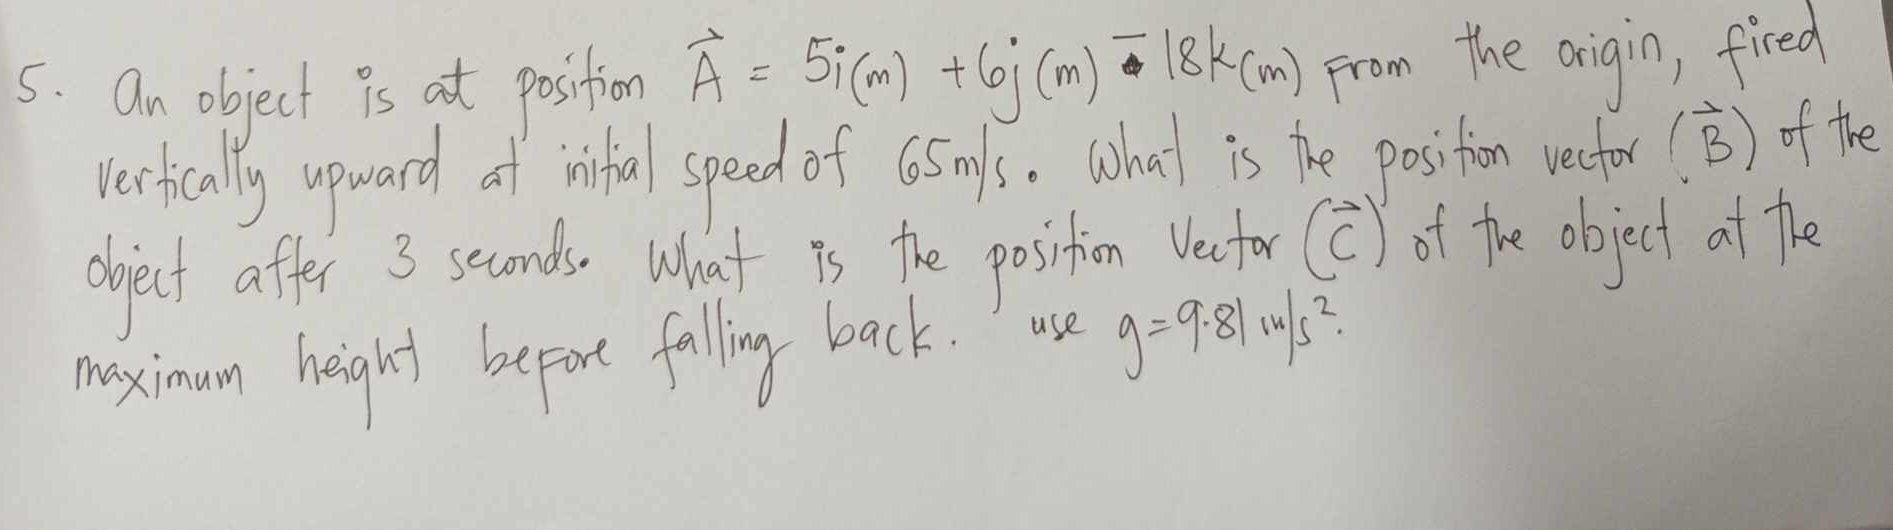 5. An object is at position A⃗ = 5i(m) + 6j(m) - 18k(m) From the origin, fired
vertically upward at initial speed of 65m/s. What is the position vector (B⃗) of the
object after 3 seconds. What is the position Vector (C⃗) of the object at the
maximum height before falling back. use g=9.81 m/s².